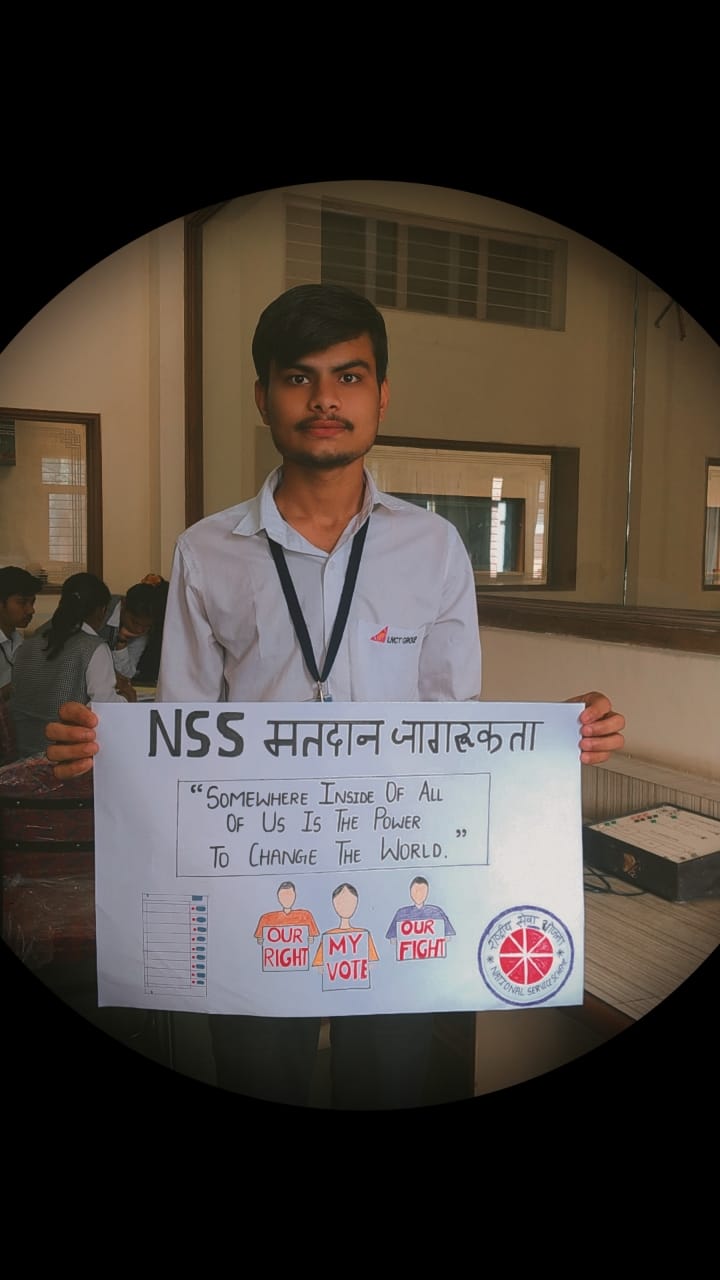 LNCT GROUP
NSS मतदान जागरूकता
“SOMEWHERE INSIDE OF ALL
OF US IS THE POWER
TO CHANGE THE WORLD.”
OUR
RIGHT
MY
VOTE
OUR
FIGHT
राष्ट्रीय सेवा योजना
NATIONAL SERVICE SCHEME